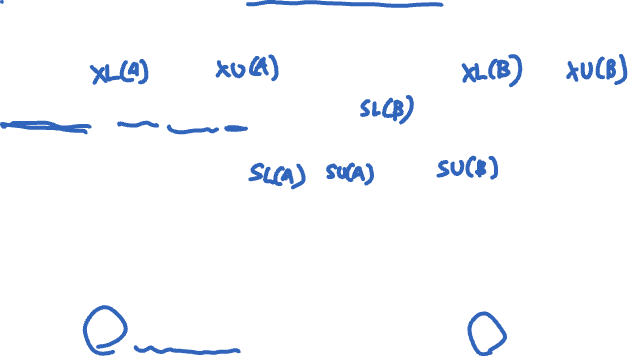 XL(A) XU(A) XL(B) XU(B)
SL(B)
SL(A) SU(A) SU(B)